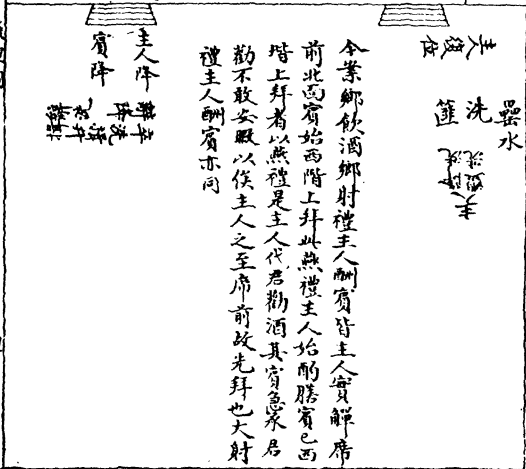 罍水
洗
篚
主人復位
今案鄉飲酒鄉射禮主人酬賓皆主人實觶席
前北面賓始西階上拜此燕禮主人始酌膳賓已西
階上拜者以燕禮是主人代君勸酒其賓急承君
勸不敢安暇以俟主人之至席前故先拜也大射
禮主人酬賓亦同
主人降
賓降